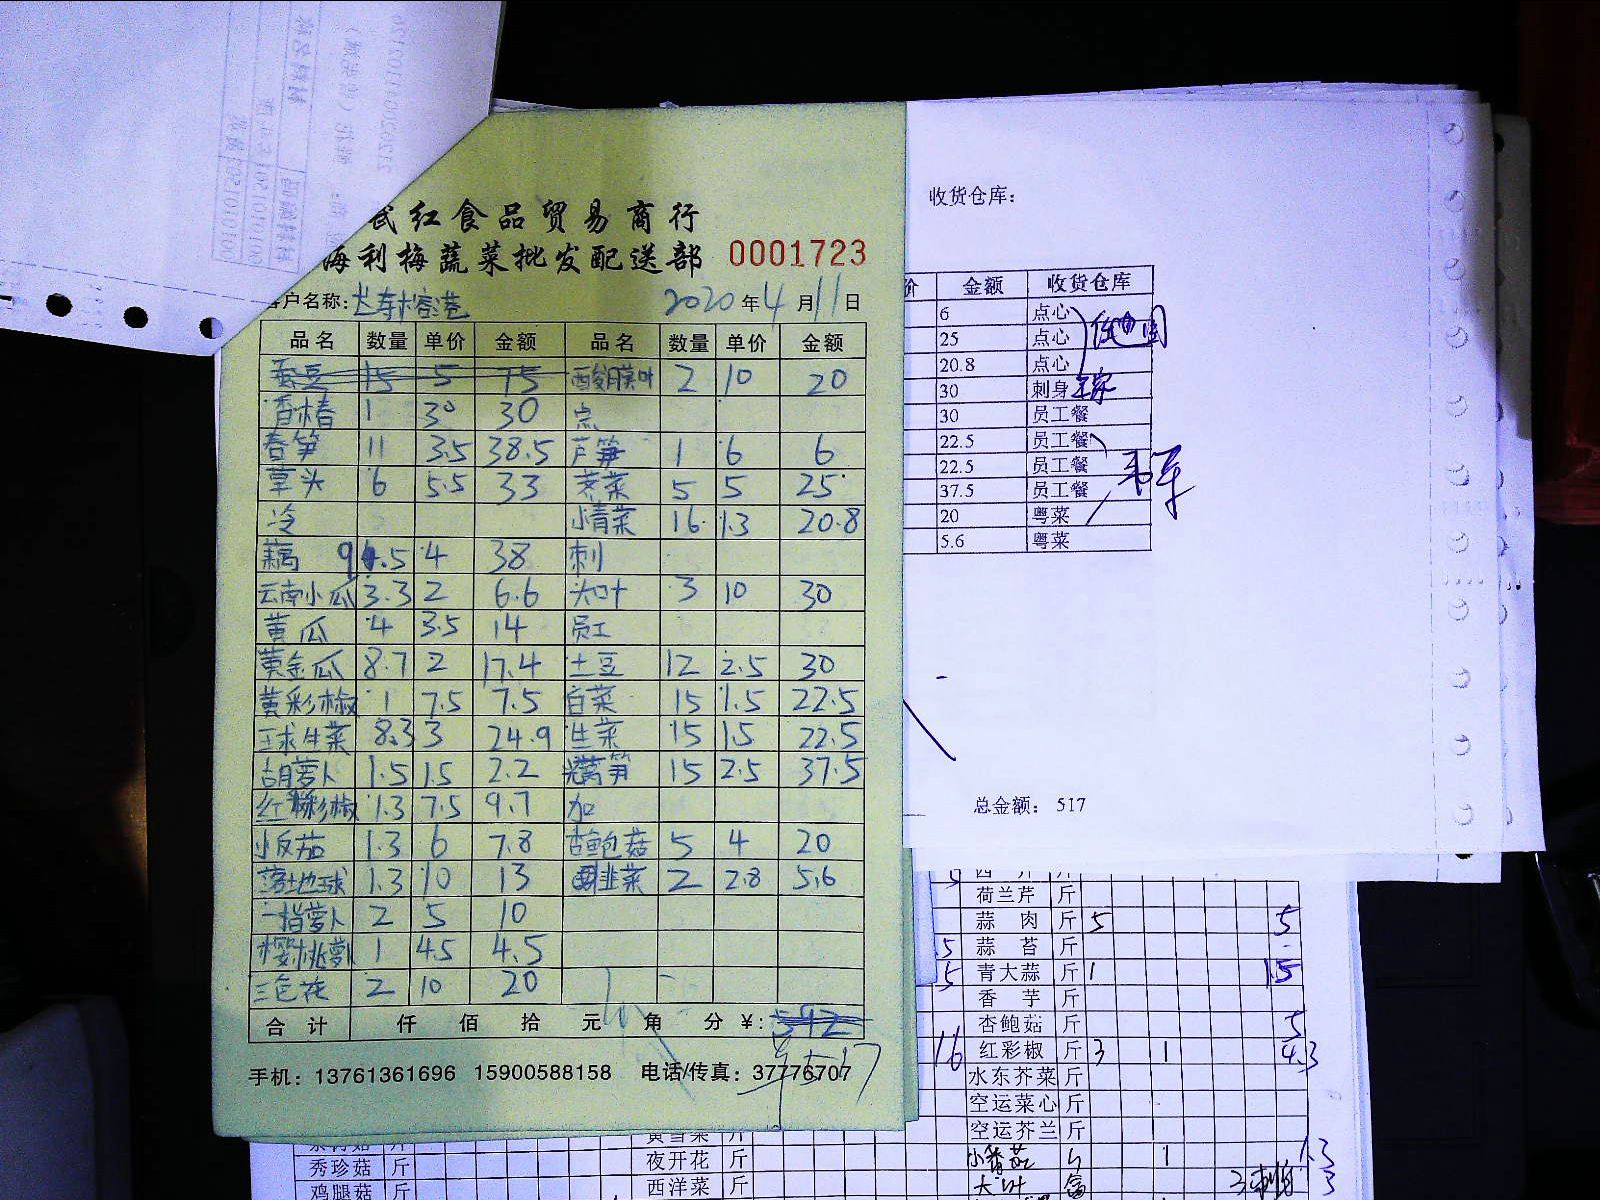 武红食品贸易商行
海利梅蔬菜批发配送部 0001723
客户名称: 2020年4月11日
品名 数量 单价 金额 品名 数量 单价 金额
蚕豆 15 5 75 酸膜叶 2 10 20
香椿 1 30 30 点
春笋 11 3.5 38.5 芦笋 1 6 6
草头 6 5.5 33 荠菜 5 5 25
冷 小青菜 16 1.3 20.8
藕 9.5 4 38 刺
云南小瓜 3.3 2 6.6 大叶 3 10 30
黄瓜 4 3.5 14 员工
黄金瓜 8.7 2 17.4 土豆 12 2.5 30
黄彩椒 1 7.5 7.5 白菜 15 1.5 22.5
球生菜 8.3 3 24.9 生菜 15 1.5 22.5
胡萝卜 1.5 1.5 2.2 莴笋 15 2.5 37.5
红彩椒 1.3 7.5 9.7 加
小反茄 1.3 6 7.8 杏鲍菇 5 4 20
落地球 1.3 10 13 韭菜 2 2.8 5.6
一指萝卜 2 5 10
樱桃萝卜 1 4.5 4.5
三色花 2 10 20
合计 仟 佰 拾 元 角 分 ¥: 592
517
手机: 13761361696 15900588158 电话/传真: 37776707
收货仓库:
价 金额 收货仓库
6 点心
25 点心
20.8 点心
30 刺身
30 员工餐
22.5 员工餐
22.5 员工餐
37.5 员工餐
20 粤菜
5.6 粤菜
总金额: 517
荷兰芹 斤
蒜肉 斤 5 5
蒜苔 斤
青大蒜 斤 1 1.5
香芋 斤
杏鲍菇 斤 5
16 红彩椒 斤 3 1 4.3
水东芥菜 斤
空运菜心 斤
空运芥兰 斤
小番茄 1 1.3
秀珍菇 斤 夜开花 斤
鸡腿菇 斤 西洋菜 斤 大叶 3